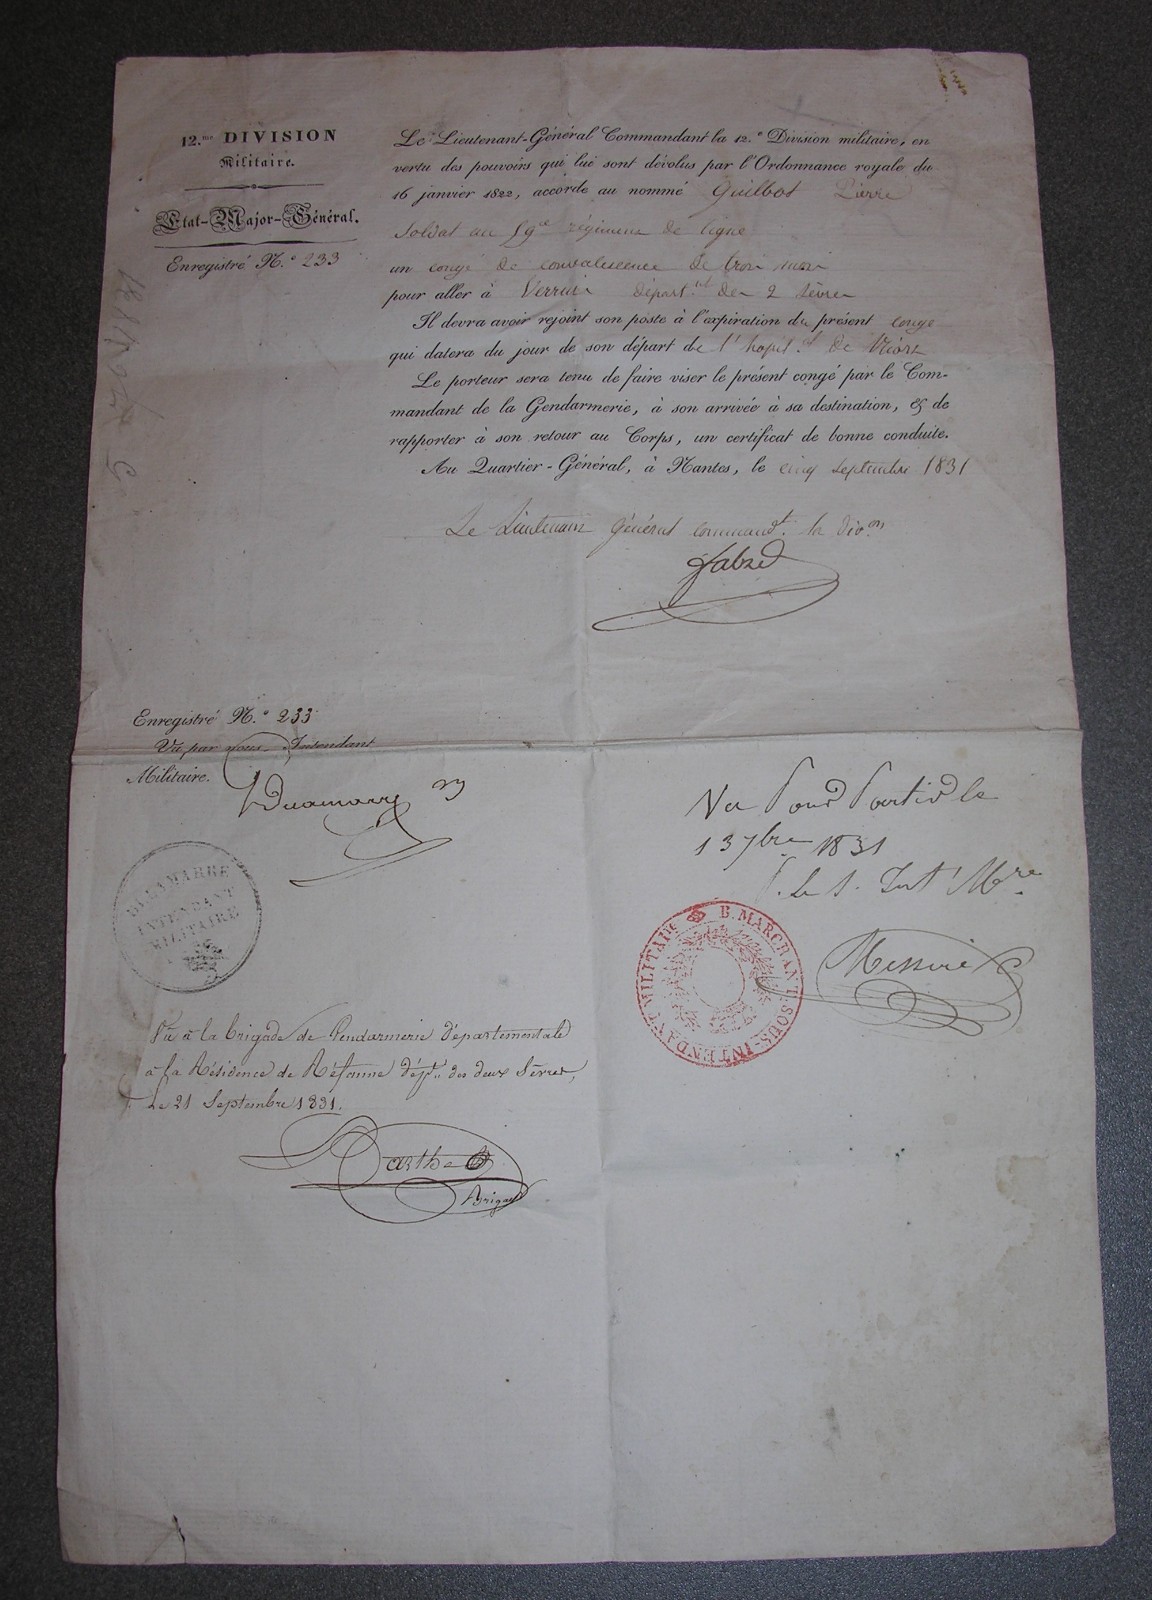 12.me DIVISION
Militaire.
Etat-Major-Général.
Enregistré N.o 233
Le Lieutenant-Général Commandant la 12.e Division militaire, en
vertu des pouvoirs qui lui sont dévolus par l'Ordonnance royale du
16 janvier 1822, accorde au nommé Guilbot Pierre
Soldat au régiment de ligne
un congé de convalescence de trois mois
pour aller à départ.nt des 2 Sèvres
Il devra avoir rejoint son poste à l'expiration du présent congé
qui datera du jour de son départ de l'hopit.al de Niort
Le porteur sera tenu de faire viser le présent congé par le Com-
mandant de la Gendarmerie, à son arrivée à sa destination, & de
rapporter à son retour au Corps, un certificat de bonne conduite.
Au Quartier-Général, à Nantes, le cinq Septembre 1831
Le Lieutenant Général command.t la div.on
Enregistré N.o 233
Vu par nous Intendant
Militaire.
INTENDANT
MILITAIRE
Vu Pour Partir le
13 7bre 1831
P. le S. Int.t M.re
B. MARCHANT SOUS-INTENDANT MILITAIRE
Vu à la brigade de Gendarmerie Départementale
à la Résidence de dép.t des deux Sèvres,
Le 21 Septembre 1831.